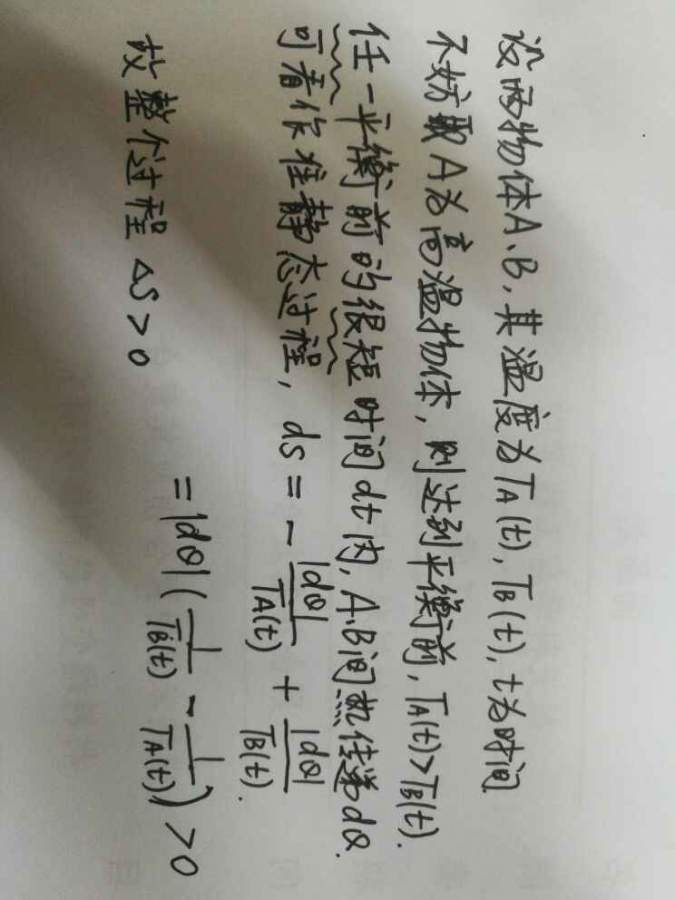 设两物体A、B,其温度为T_A(t),T_B(t),t为时间
不妨取A为高温物体,则达到平衡前,T_A(t)>T_B(t).
任一平衡前的很短时间dt内,A、B间热传递dQ.
可看作准静态过程,ds = -|dQ|/T_A(t) + |dQ|/T_B(t).
= |dQ|(1/T_B(t) - 1/T_A(t)) > 0
故整个过程 ΔS>0